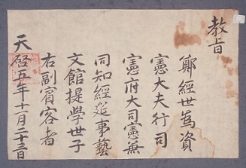 教旨
鄭經世為資
憲大夫行司
憲府大司憲兼
同知經筵事藝
文館提學世子
右副賓客者
天啓五年十月二十三日